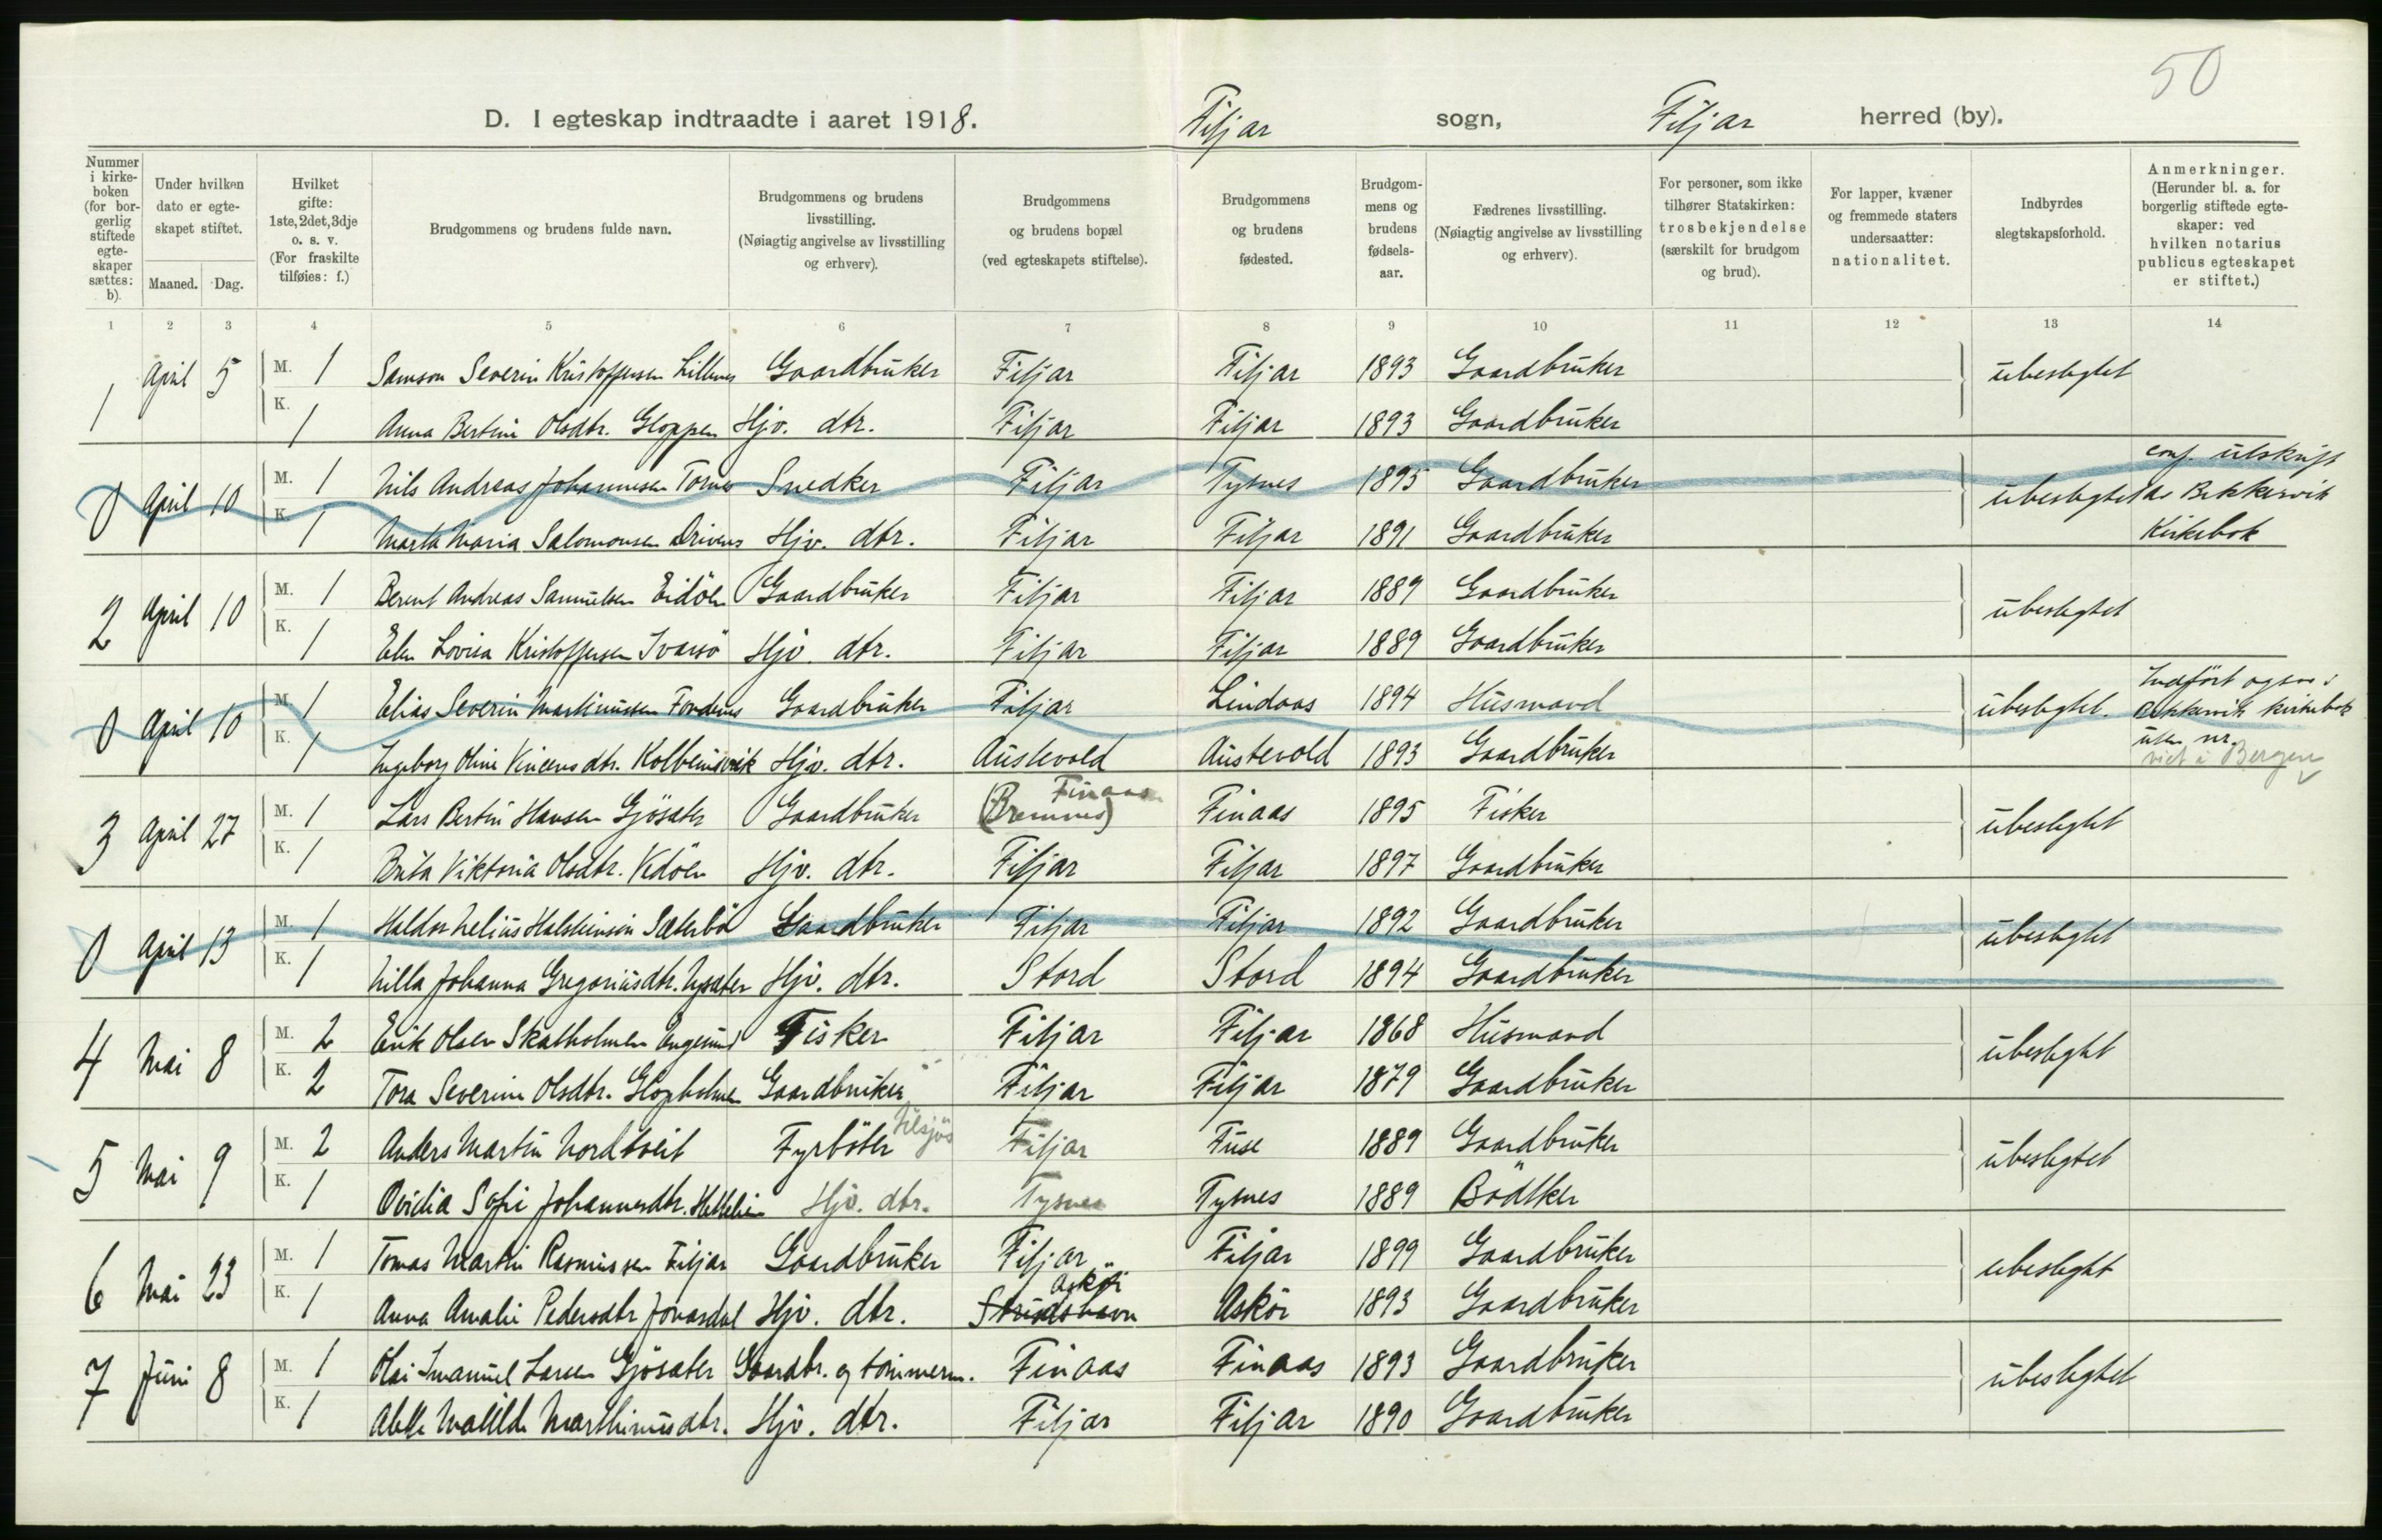 50
D. I egteskap indtraadte i aaret 1918. Fitjar sogn, Fitjar herred (by).
Nummer i kirkeboken (for borgerlig stiftede egteskaper sættes: b).
Under hvilken dato er egteskapet stiftet.
Maaned. Dag.
Hvilket gifte: 1ste, 2det, 3dje o. s. v. (For fraskilte tilføies: f.)
Brudgommens og brudens fulde navn.
Brudgommens og brudens livsstilling. (Nøiagtig angivelse av livsstilling og erhverv).
Brudgommens og brudens bopæl (ved egteskapets stiftelse).
Brudgommens og brudens fødested.
Brudgommens og brudens fødselsaar.
Fædrenes livsstilling. (Nøiagtig angivelse av livsstilling og erhverv).
For personer, som ikke tilhører Statskirken: trosbekjendelse (særskilt for brudgom og brud).
For lapper, kvæner og fremmede staters undersaatter: nationalitet.
Indbyrdes slegtskapsforhold.
Anmerkninger. (Herunder bl. a. for borgerlig stiftede egteskaper: ved hvilken notarius publicus egteskapet er stiftet.)
1 2 3 4 5 6 7 8 9 10 11 12 13 14
1 April 5 M. 1 Samson Severin Kristoffersen Gaardbruker Fitjar Fitjar 1893 Gaardbruker ubeslegtet
K. 1 Anna Bertine Olsdtr. Gloppen Hjv. dtr. Fitjar Fitjar 1893 Gaardbruker
0 April 10 M. 1 Nils Andreas Johannesen Snedker Fitjar Tysnes 1895 Gaardbruker ubeslegtet utskrift Bekkervik Kirkebok
K. 1 Marta Maria Salomonsen Drivenes Hjv. dtr. Fitjar Fitjar 1891 Gaardbruker
2 April 10 M. 1 Berent Andreas Samuelsen Eidöen Gaardbruker Fitjar Fitjar 1889 Gaardbruker ubeslegtet
K. 1 Lovisa Kristoffersen Ivarsö Hjv. dtr. Fitjar Fitjar 1889 Gaardbruker
0 April 10 M. 1 Elias Severin Martinussen Gaardbruker Fitjar Lindaas 1894 Husmand ubeslegtet. Indført ogsaa i Bekkervik kirkebok uten nr.
K. 1 Ingeborg Oline Vincensdtr. Kolbeinsvik Hjv. dtr. Austevold Austevold 1893 Gaardbruker viet i Bergen
3 April 27 M. 1 Lars Bertin Hansen Gjösæter Gaardbruker (Bremnes) Finaas Finaas 1895 Fisker ubeslegtet
K. 1 Brita Viktoria Olsdtr. Vedöen Hjv. dtr. Fitjar Fitjar 1897 Gaardbruker
0 April 13 M. 1 Haldor Nelius Halsteinsen Sæterbö Gaardbruker Fitjar Fitjar 1892 Gaardbruker ubeslegtet
K. 1 Nilla Johanna Gregoriusdtr. Nysæter Hjv. dtr. Stord Stord 1894 Gaardbruker
4 Mai 8 M. 2 Erik Olsen Skatholmen Engesund Fisker Fitjar Fitjar 1868 Husmand ubeslegtet
K. 2 Tora Severine Olsdtr. Glopholmen Gaardbruker Fitjar Fitjar 1879 Gaardbruker
5 Mai 9 M. 2 Anders Martin Nordtveit Fyrböter tilsjøs Fitjar Fuse 1889 Gaardbruker ubeslegtet
K. 1 Ovidia Sofie Johannesdtr. Hjv. dtr. Tysnes Tysnes 1889 Bödtker
6 Mai 23 M. 1 Tomas Martin Rasmussen Fitjar Gaardbruker Fitjar Fitjar 1899 Gaardbruker ubeslegtet
K. 1 Anna Amalie Pedersdtr Jonasdal Hjv. dtr. Strudshavn Askøi Askör 1893 Gaardbruker
7 Juni 8 M. 1 Olai Imanuel Larsen Gjösæter Gaardbr. og tömmerm. Finaas Finaas 1893 Gaardbruker ubeslegtet
K. 1 Matilde Marthinusdtr. Hjv. dtr. Fitjar Fitjar 1890 Gaardbruker